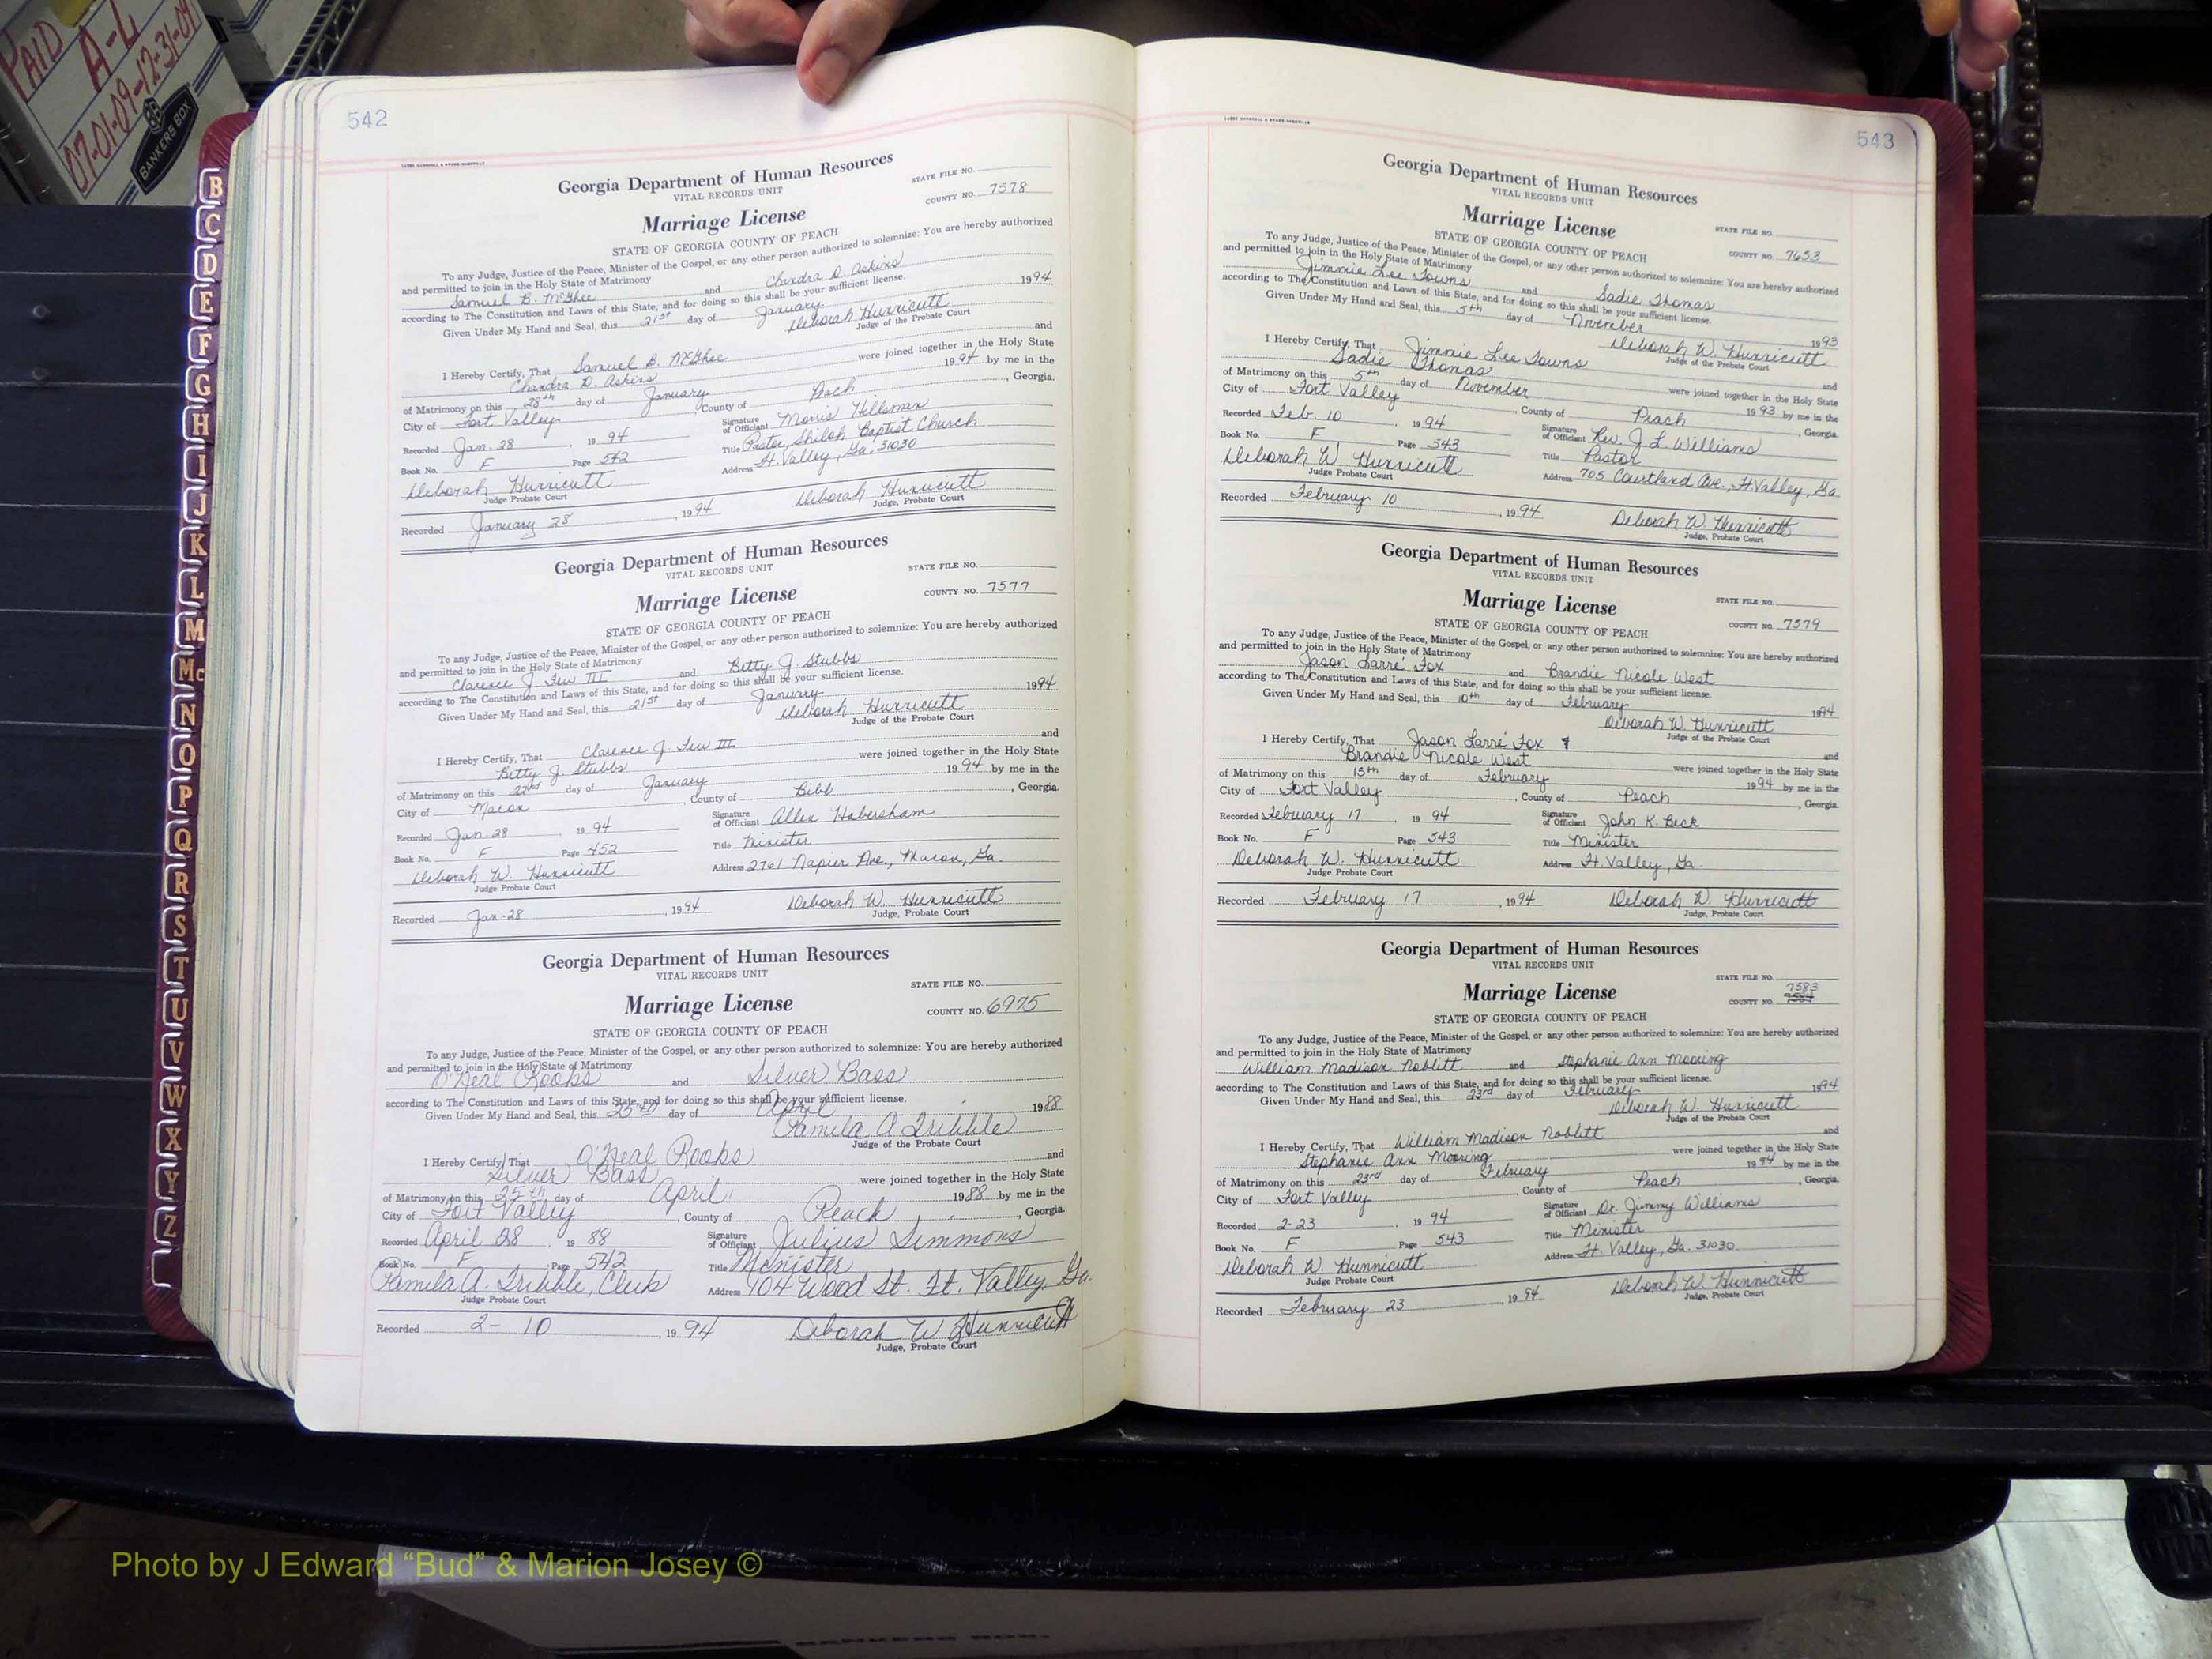 PAID
A-L
07-01-09-12-31-09
BANKERS BOX
B
C
D
E
F
G
H
I
J
K
L
M
Mc
N
O
P
Q
R
S
T
U
V
W
X
Y
Z
542
Georgia Department of Human Resources
VITAL RECORDS UNIT
STATE FILE NO.
COUNTY NO. 7578
Marriage License
STATE OF GEORGIA COUNTY OF PEACH
To any Judge, Justice of the Peace, Minister of the Gospel, or any other person authorized to solemnize: You are hereby authorized
and permitted to join in the Holy State of Matrimony
Samuel B. McGhee and Chandra D. Askins
according to The Constitution and Laws of this State, and for doing so this shall be your sufficient license.
Given Under My Hand and Seal, this 21st day of January 1994
Deborah Hunnicutt
Judge of the Probate Court
I Hereby Certify, That Samuel B. McGhee and
Chandra D. Askins were joined together in the Holy State
of Matrimony on this 28th day of January 1994 by me in the
City of Fort Valley County of Peach, Georgia.
Recorded Jan. 28, 1994 Signature of Officiant Morris Hillsman
Book No. F Page 542 Title Pastor, Shiloh Baptist Church
Deborah Hunnicutt Address Ft. Valley, Ga. 31030
Judge Probate Court
Recorded January 28, 1994 Deborah Hunnicutt
Judge, Probate Court
Georgia Department of Human Resources
VITAL RECORDS UNIT
STATE FILE NO.
COUNTY NO. 7577
Marriage License
STATE OF GEORGIA COUNTY OF PEACH
To any Judge, Justice of the Peace, Minister of the Gospel, or any other person authorized to solemnize: You are hereby authorized
and permitted to join in the Holy State of Matrimony
Clarence J. Few III and Betty J. Stubbs
according to The Constitution and Laws of this State, and for doing so this shall be your sufficient license.
Given Under My Hand and Seal, this 21st day of January 1994
Deborah Hunnicutt
Judge of the Probate Court
I Hereby Certify, That Clarence J. Few III and
Betty J. Stubbs were joined together in the Holy State
of Matrimony on this 22nd day of January 1994 by me in the
City of Macon, County of Bibb, Georgia.
Recorded Jan-28, 1994 Signature of Officiant Allen Habersham
Book No. F Page 452 Title Minister
Deborah W. Hunnicutt Address 2761 Napier Ave., Macon, Ga.
Judge Probate Court
Recorded Jan-28, 1994 Deborah W. Hunnicutt
Judge, Probate Court
Georgia Department of Human Resources
VITAL RECORDS UNIT
STATE FILE NO.
COUNTY NO. 6975
Marriage License
STATE OF GEORGIA COUNTY OF PEACH
To any Judge, Justice of the Peace, Minister of the Gospel, or any other person authorized to solemnize: You are hereby authorized
and permitted to join in the Holy State of Matrimony
O'Neal Rooks and Silver Bass
according to The Constitution and Laws of this State, and for doing so this shall be your sufficient license.
Given Under My Hand and Seal, this 25th day of April 1988
Pamila A Tribble
Judge of the Probate Court
I Hereby Certify, That O'Neal Rooks and
Silver Bass were joined together in the Holy State
of Matrimony on this 25th day of April 1988 by me in the
City of Fort Valley, County of Peach, Georgia.
Recorded April 28, 1988 Signature of Officiant Julius Simmons
Book No. F Page 542 Title Minister
Pamila A. Tribble, Clerk Address 404 Wood St. Ft. Valley, Ga.
Judge Probate Court
Recorded 2-10, 1994 Deborah W Hunnicutt
Judge, Probate Court
543
Georgia Department of Human Resources
VITAL RECORDS UNIT
Marriage License
STATE FILE NO.
STATE OF GEORGIA COUNTY OF PEACH
COUNTY NO. 7653
To any Judge, Justice of the Peace, Minister of the Gospel, or any other person authorized to solemnize: You are hereby authorized
and permitted to join in the Holy State of Matrimony
Jimmie Lee Towns and Sadie Thomas
according to The Constitution and Laws of this State, and for doing so this shall be your sufficient license.
Given Under My Hand and Seal, this 5th day of November 1993
Deborah W. Hunnicutt
Judge of the Probate Court
I Hereby Certify, That Jimmie Lee Towns and
Sadie Thomas were joined together in the Holy State
of Matrimony on this 5th day of November 1993 by me in the
City of Fort Valley, County of Peach, Georgia.
Recorded Feb. 10, 1994 Signature of Officiant Rev. J L Williams
Book No. F Page 543 Title Pastor
Deborah W Hunnicutt Address 705 Courtland Ave., Ft. Valley, Ga.
Judge Probate Court
Recorded February 10, 1994 Deborah W. Hunnicutt
Judge, Probate Court
Georgia Department of Human Resources
VITAL RECORDS UNIT
Marriage License
STATE FILE NO.
STATE OF GEORGIA COUNTY OF PEACH
COUNTY NO. 7579
To any Judge, Justice of the Peace, Minister of the Gospel, or any other person authorized to solemnize: You are hereby authorized
and permitted to join in the Holy State of Matrimony
Jason Larré Fox and Brandie Nicole West
according to The Constitution and Laws of this State, and for doing so this shall be your sufficient license.
Given Under My Hand and Seal, this 10th day of February 1994
Deborah W. Hunnicutt
Judge of the Probate Court
I Hereby Certify, That Jason Larré Fox & and
Brandie Nicole West were joined together in the Holy State
of Matrimony on this 15th day of February 1994 by me in the
City of Fort Valley, County of Peach, Georgia.
Recorded February 17, 1994 Signature of Officiant John K. Beck
Book No. F Page 543 Title Minister
Deborah W. Hunnicutt Address Ft. Valley, Ga.
Judge Probate Court
Recorded February 17, 1994 Deborah W. Hunnicutt
Judge, Probate Court
Georgia Department of Human Resources
VITAL RECORDS UNIT
STATE FILE NO.
Marriage License
COUNTY NO. 7583
STATE OF GEORGIA COUNTY OF PEACH
To any Judge, Justice of the Peace, Minister of the Gospel, or any other person authorized to solemnize: You are hereby authorized
and permitted to join in the Holy State of Matrimony
William Madison Noblitt and Stephanie Ann Mooring
according to The Constitution and Laws of this State, and for doing so this shall be your sufficient license.
Given Under My Hand and Seal, this 23rd day of February 1994
Deborah W. Hunnicutt
Judge of the Probate Court
I Hereby Certify, That William Madison Noblitt and
Stephanie Ann Mooring were joined together in the Holy State
of Matrimony on this 23rd day of February 1994 by me in the
City of Fort Valley, County of Peach, Georgia.
Recorded 2-23, 1994 Signature of Officiant Dr. Jimmy Williams
Book No. F Page 543 Title Minister
Deborah W. Hunnicutt Address Ft. Valley, Ga. 31030
Judge Probate Court
Recorded February 23, 1994 Deborah W. Hunnicutt
Judge, Probate Court
Photo by J Edward "Bud" & Marion Josey ©